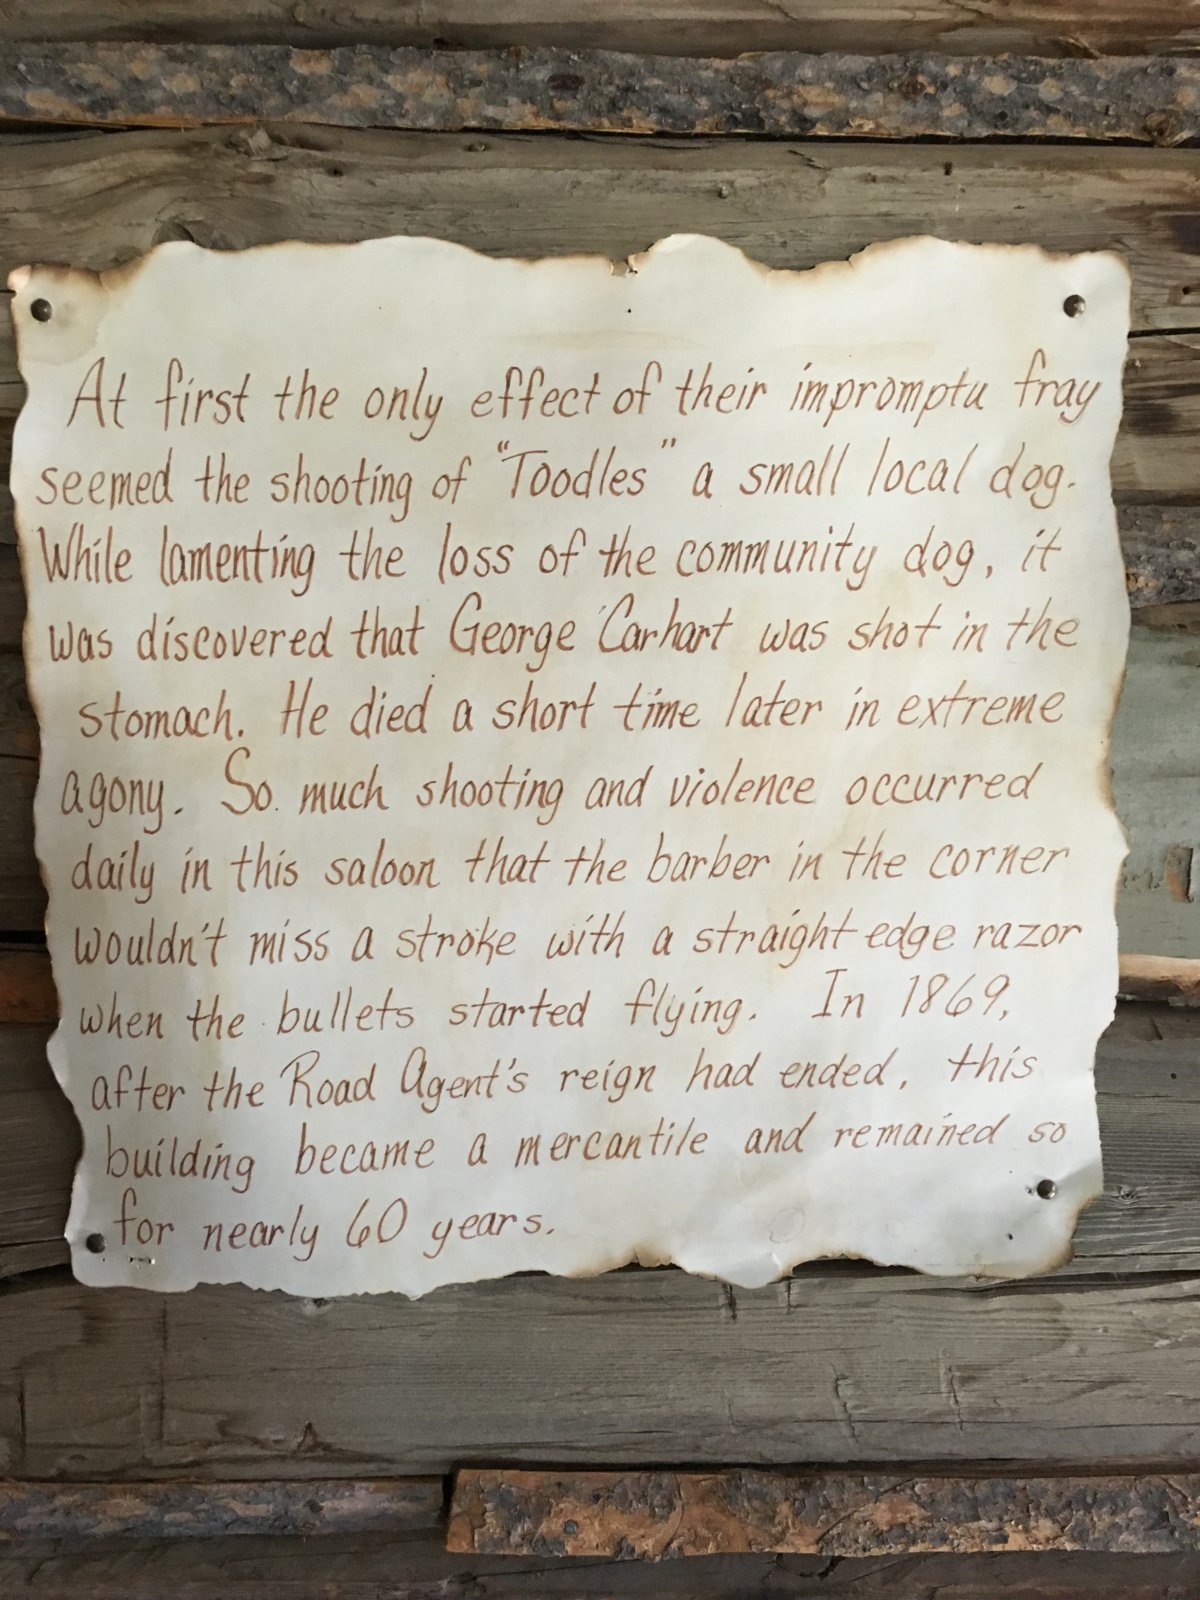 At first the only effect of their impromptu fray
seemed the shooting of "Toodles" a small local dog.
While lamenting the loss of the community dog, it
was discovered that George Carhart was shot in the
stomach. He died a short time later in extreme
agony. So much shooting and violence occurred
daily in this saloon that the barber in the corner
wouldn't miss a stroke with a straight edge razor
when the bullets started flying. In 1869,
after the Road Agent's reign had ended, this
building became a mercantile and remained so
for nearly 60 years.